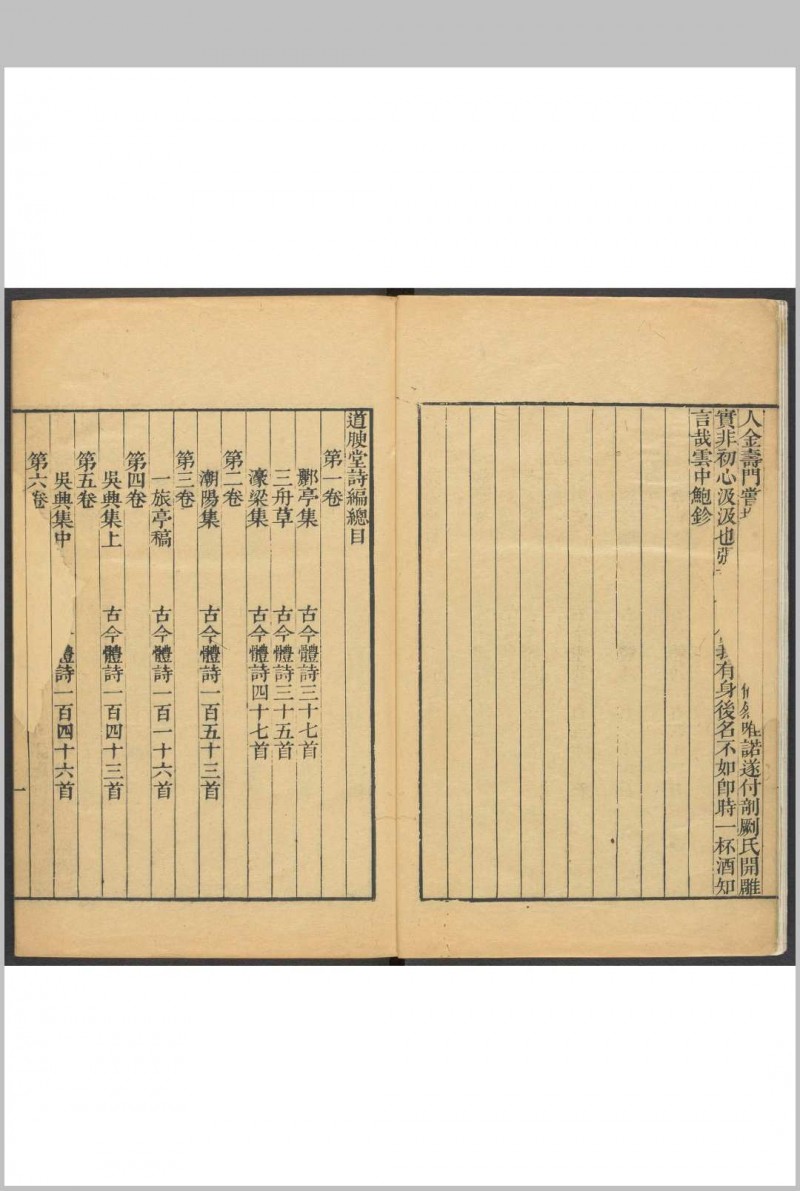 人金壽門嘗 唯諾遂付剞劂氏開雕
實非初心汲汲也張 我有身後名不如卽時一杯酒知
言哉雲中鮑鉁
道腴堂詩編總目
第一卷
酈亭集 古今體詩三十七首
三舟草 古今體詩三十五首
濠梁集 古今體詩四十七首
第二卷
潮陽集 古今體詩一百五十三首
第三卷
一旅亭稿 古今體詩一百一十六首
第四卷
吳興集上 古今體詩一百四十三首
第五卷
吳興集中 體詩一百四十六首
第六卷
一